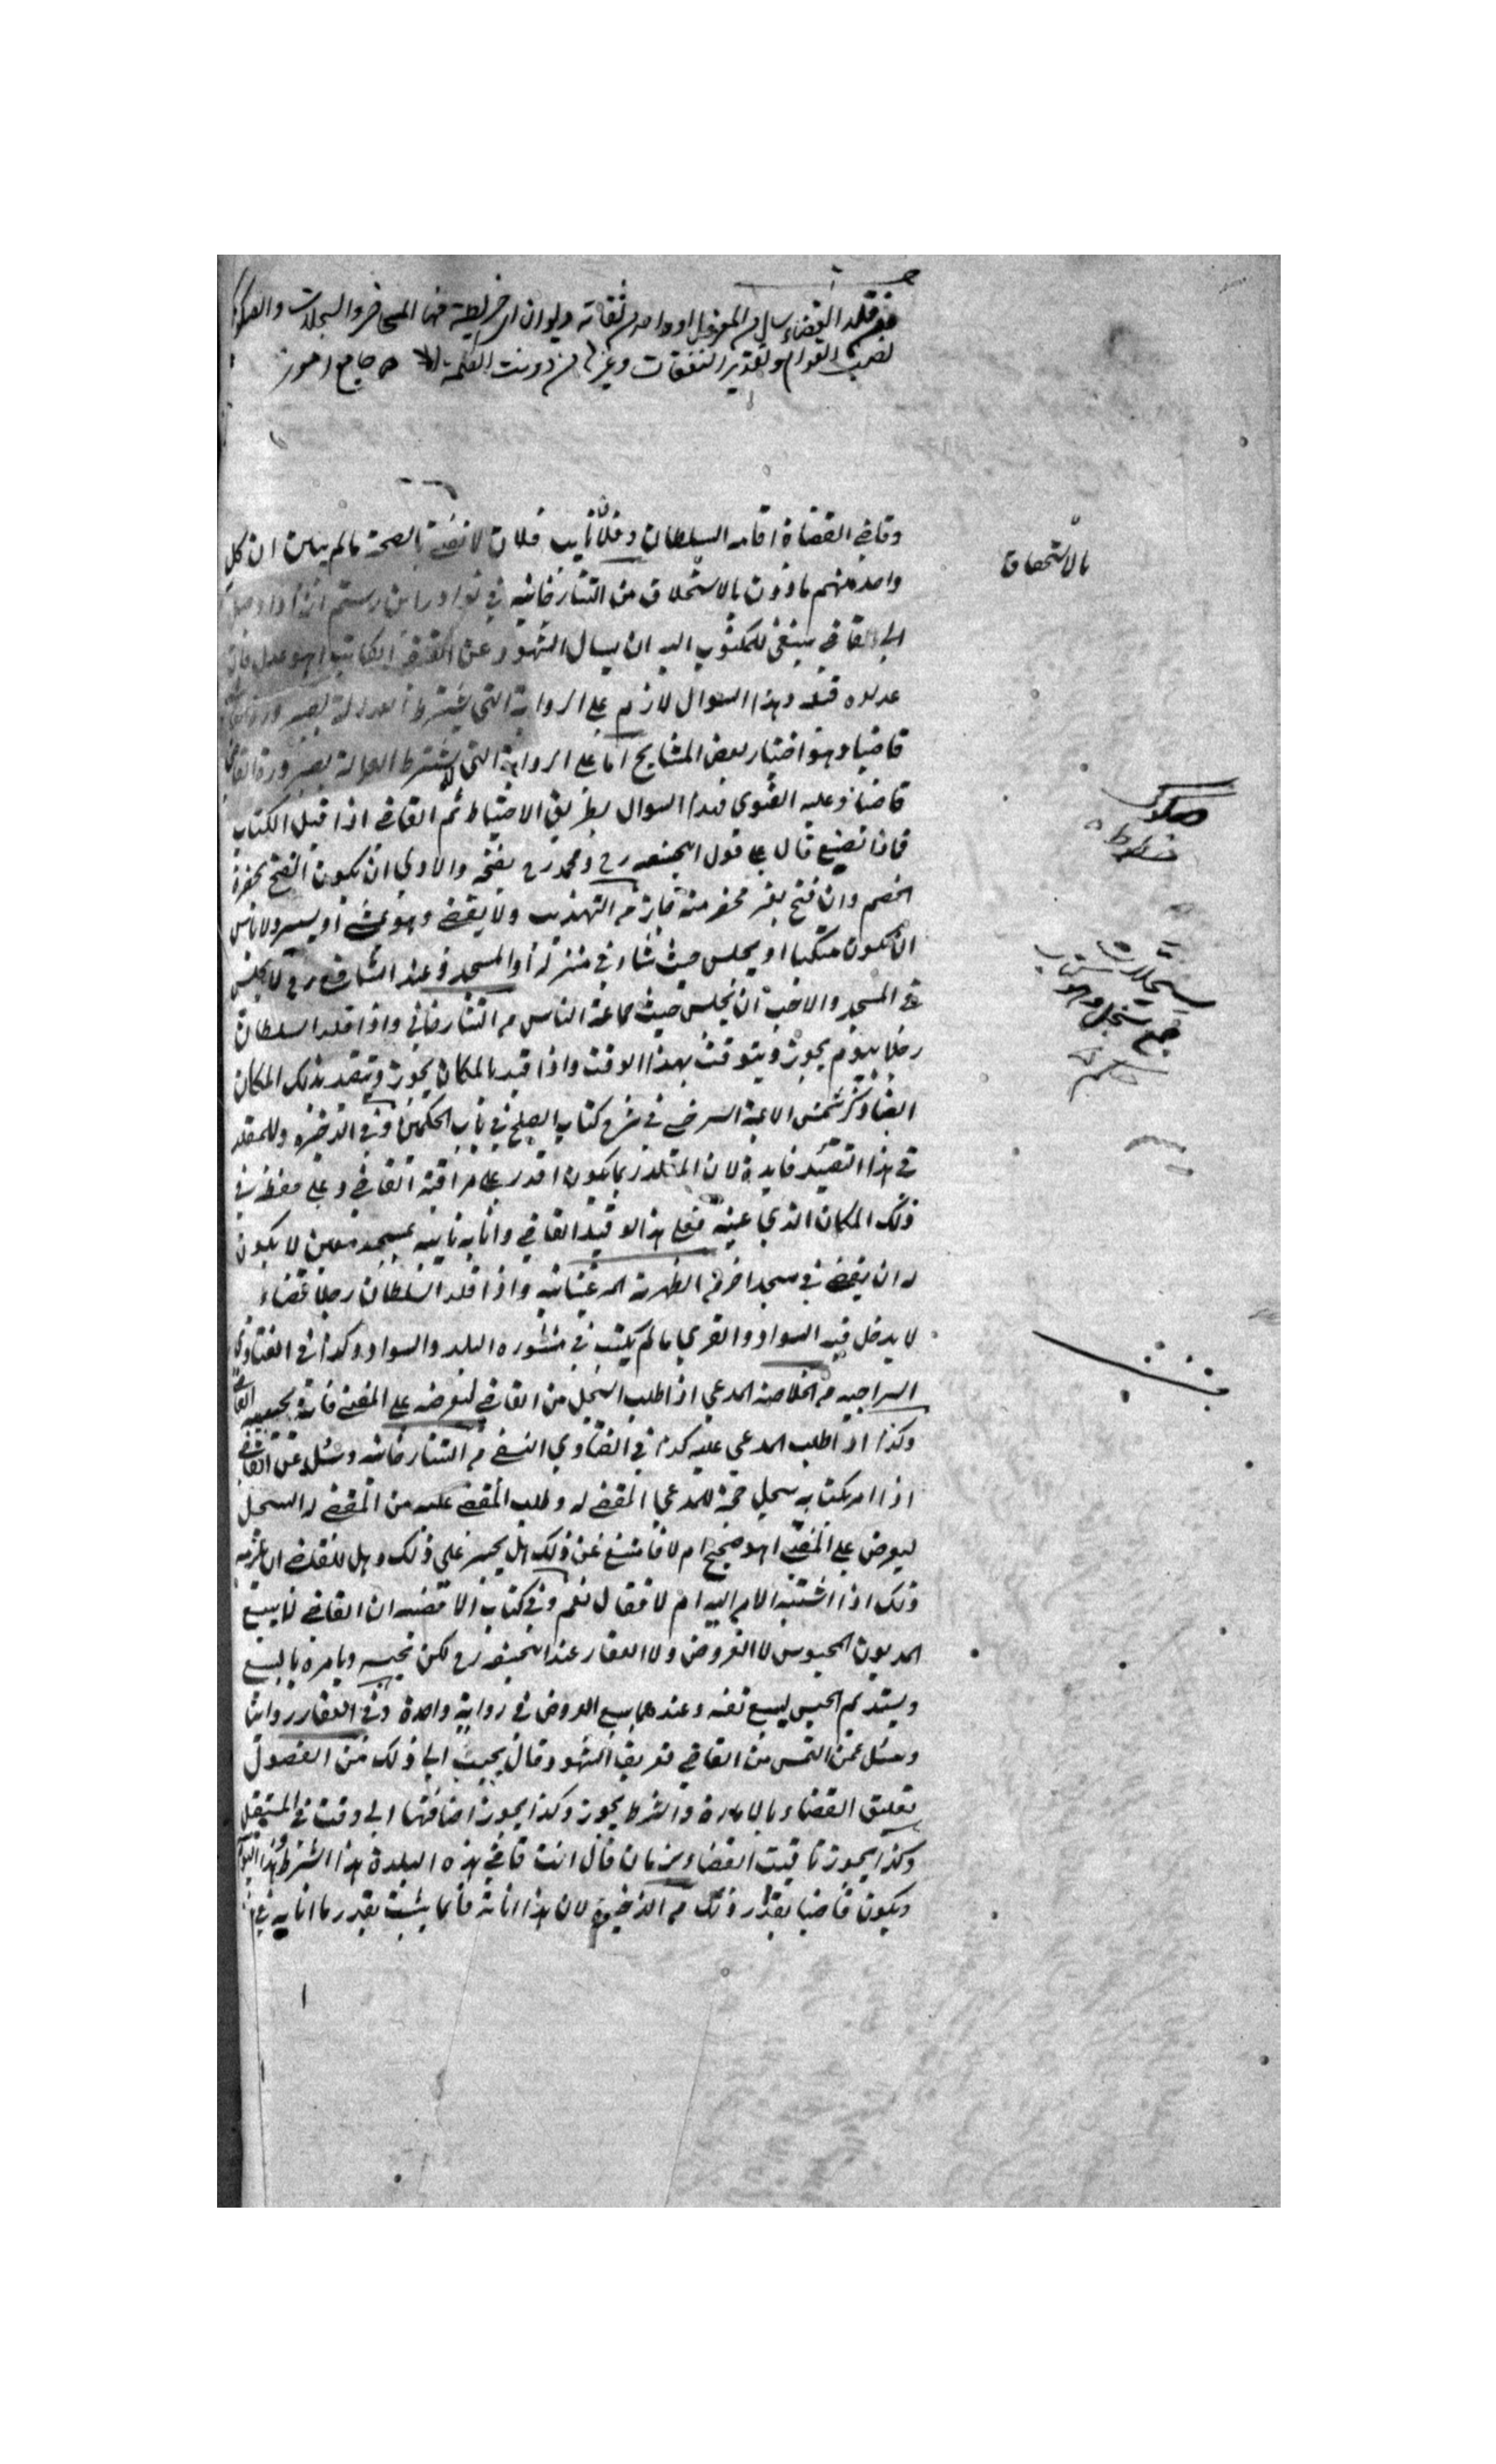 فمن قلد القضاء يسال من المعزول او واحد من ثقاته ديوان اي خريطة فيها المحاضر والسجلات والصكوك
نصب القوام وتقدير النفقات وغيرها من دونت الكلمة جامع رموز
وقاضي القضاة اقامه السلطان وفلانا نايب فلان لا نفتي بالصحة مالم يبين ان كل
واحد منهم ماذون بالاستخلاف من التتارخانيه في نوادر ابن رستم اذا وصل
الي القاضي ينبغي للمكتوب اليه ان يسال الشهود عن القاضي الكاتب اهو عدل فان
عدلوه قبله وهذا السوال لازم علي الرواية التي يشترط العدالة لصيرورة
قاضيا وهو اختيار بعض المشايخ اما علي الرواية التي لا يشترط العدالة لصيرورة القاضي
قاضيا وعليه الفتوي فهذا السوال بطريق الاحتياط ثم القاضي اذا قبل الكتاب
فماذا تصنيع قال علي قول ابيحنيفه رح ومحمد رح يفتحه والاولي ان يكون الفتح بحضرة
الخصم وان فتح بغير محضر منه جاز من التهذيب ولا يقضي وهو يمشي او يسير ولا باس
ان يكون متكيا او يجلس حيث شاء في منزله او المسجد وعند الشافعي رح لا يجلس
في المسجد والاحب ان يجلس حيث جماعة الناس من التتارخاني واذا قلد السلطان
رجلا بيوم يجوز ويتوقت بهذا الوقت واذا قيد بالمكان يجوز ويتقيد بذلك المكان
ايضا وذكر شمس الايمة السرخسي في شرح كتاب الصلح في باب الحكمين وفي الذخيره وللمقلد
في هذا التقييد فايدة لان المقلد ربما يكون اقدر علي مراقبة القاضي وعلي حفظه في
ذلك المكان الذي عينه فعلي هذا لو قيد القاضي وانابه نايبه بمسجد معين لا يكون
له ان يقضي في مسجد اخر من الظهيرية المرغينانيه واذا قلد السلطان رجلا قضاء
لا يدخل فيه السواد والقري مالم يكتب في منشوره البلد والسواد وكذا في الفتاوي
السراجيه من الخلاصة المدعي اذا طلب السجل من القاضي ليعرضه علي المفتي فانه يجيبه القاضي
وكذا اذا طلب المدعي عليه كذا في الفتاوي النسفي من التتارخانيه وسئل عن القاضي
اذا امر بكتابه سجل حجة للمدعي المقضي له وطلب المقضي عليه من المقضي له السجل
ليعرض علي المفتي اهو صحيح ام لا فامتنع عن ذلك هل يجبر علي ذلك وهل للقاضي ان يلزمه
ذلك اذا اشتبه الامر اليه ام لا فقال نعم وفي كتاب الاقضيه ان القاضي لا يبيع
المديون المحبوس لا العروض ولا العقار عند ابيحنيفه رح لكن يحبسه ويامره بالبيع
ويستديم الحبس ليبيع نفسه وعندهما يبيع العروض في رواية واحدة وفي العقار روايتان
وسئل عمن التمس من القاضي تعريف الشهود قال يجيب الي ذلك من الفصول
تعليق القضاء بالامارة والشرط يجوز وكذا يجوز اضافتها الي وقت في المستقبل
وكذا يجوز تاقيت القضاء بزمان قال انت قاضي هذه البلدة هذا الشهر وهذا اليوم
ويكون قاضيا بقدر ذلك من الذخيرة لان هذا انابة فانما يثبت بقدر ما انابه
بالاستحقاق
صكوك
خطوط
سجلات
جمع سجل وهو كتاب
حكم